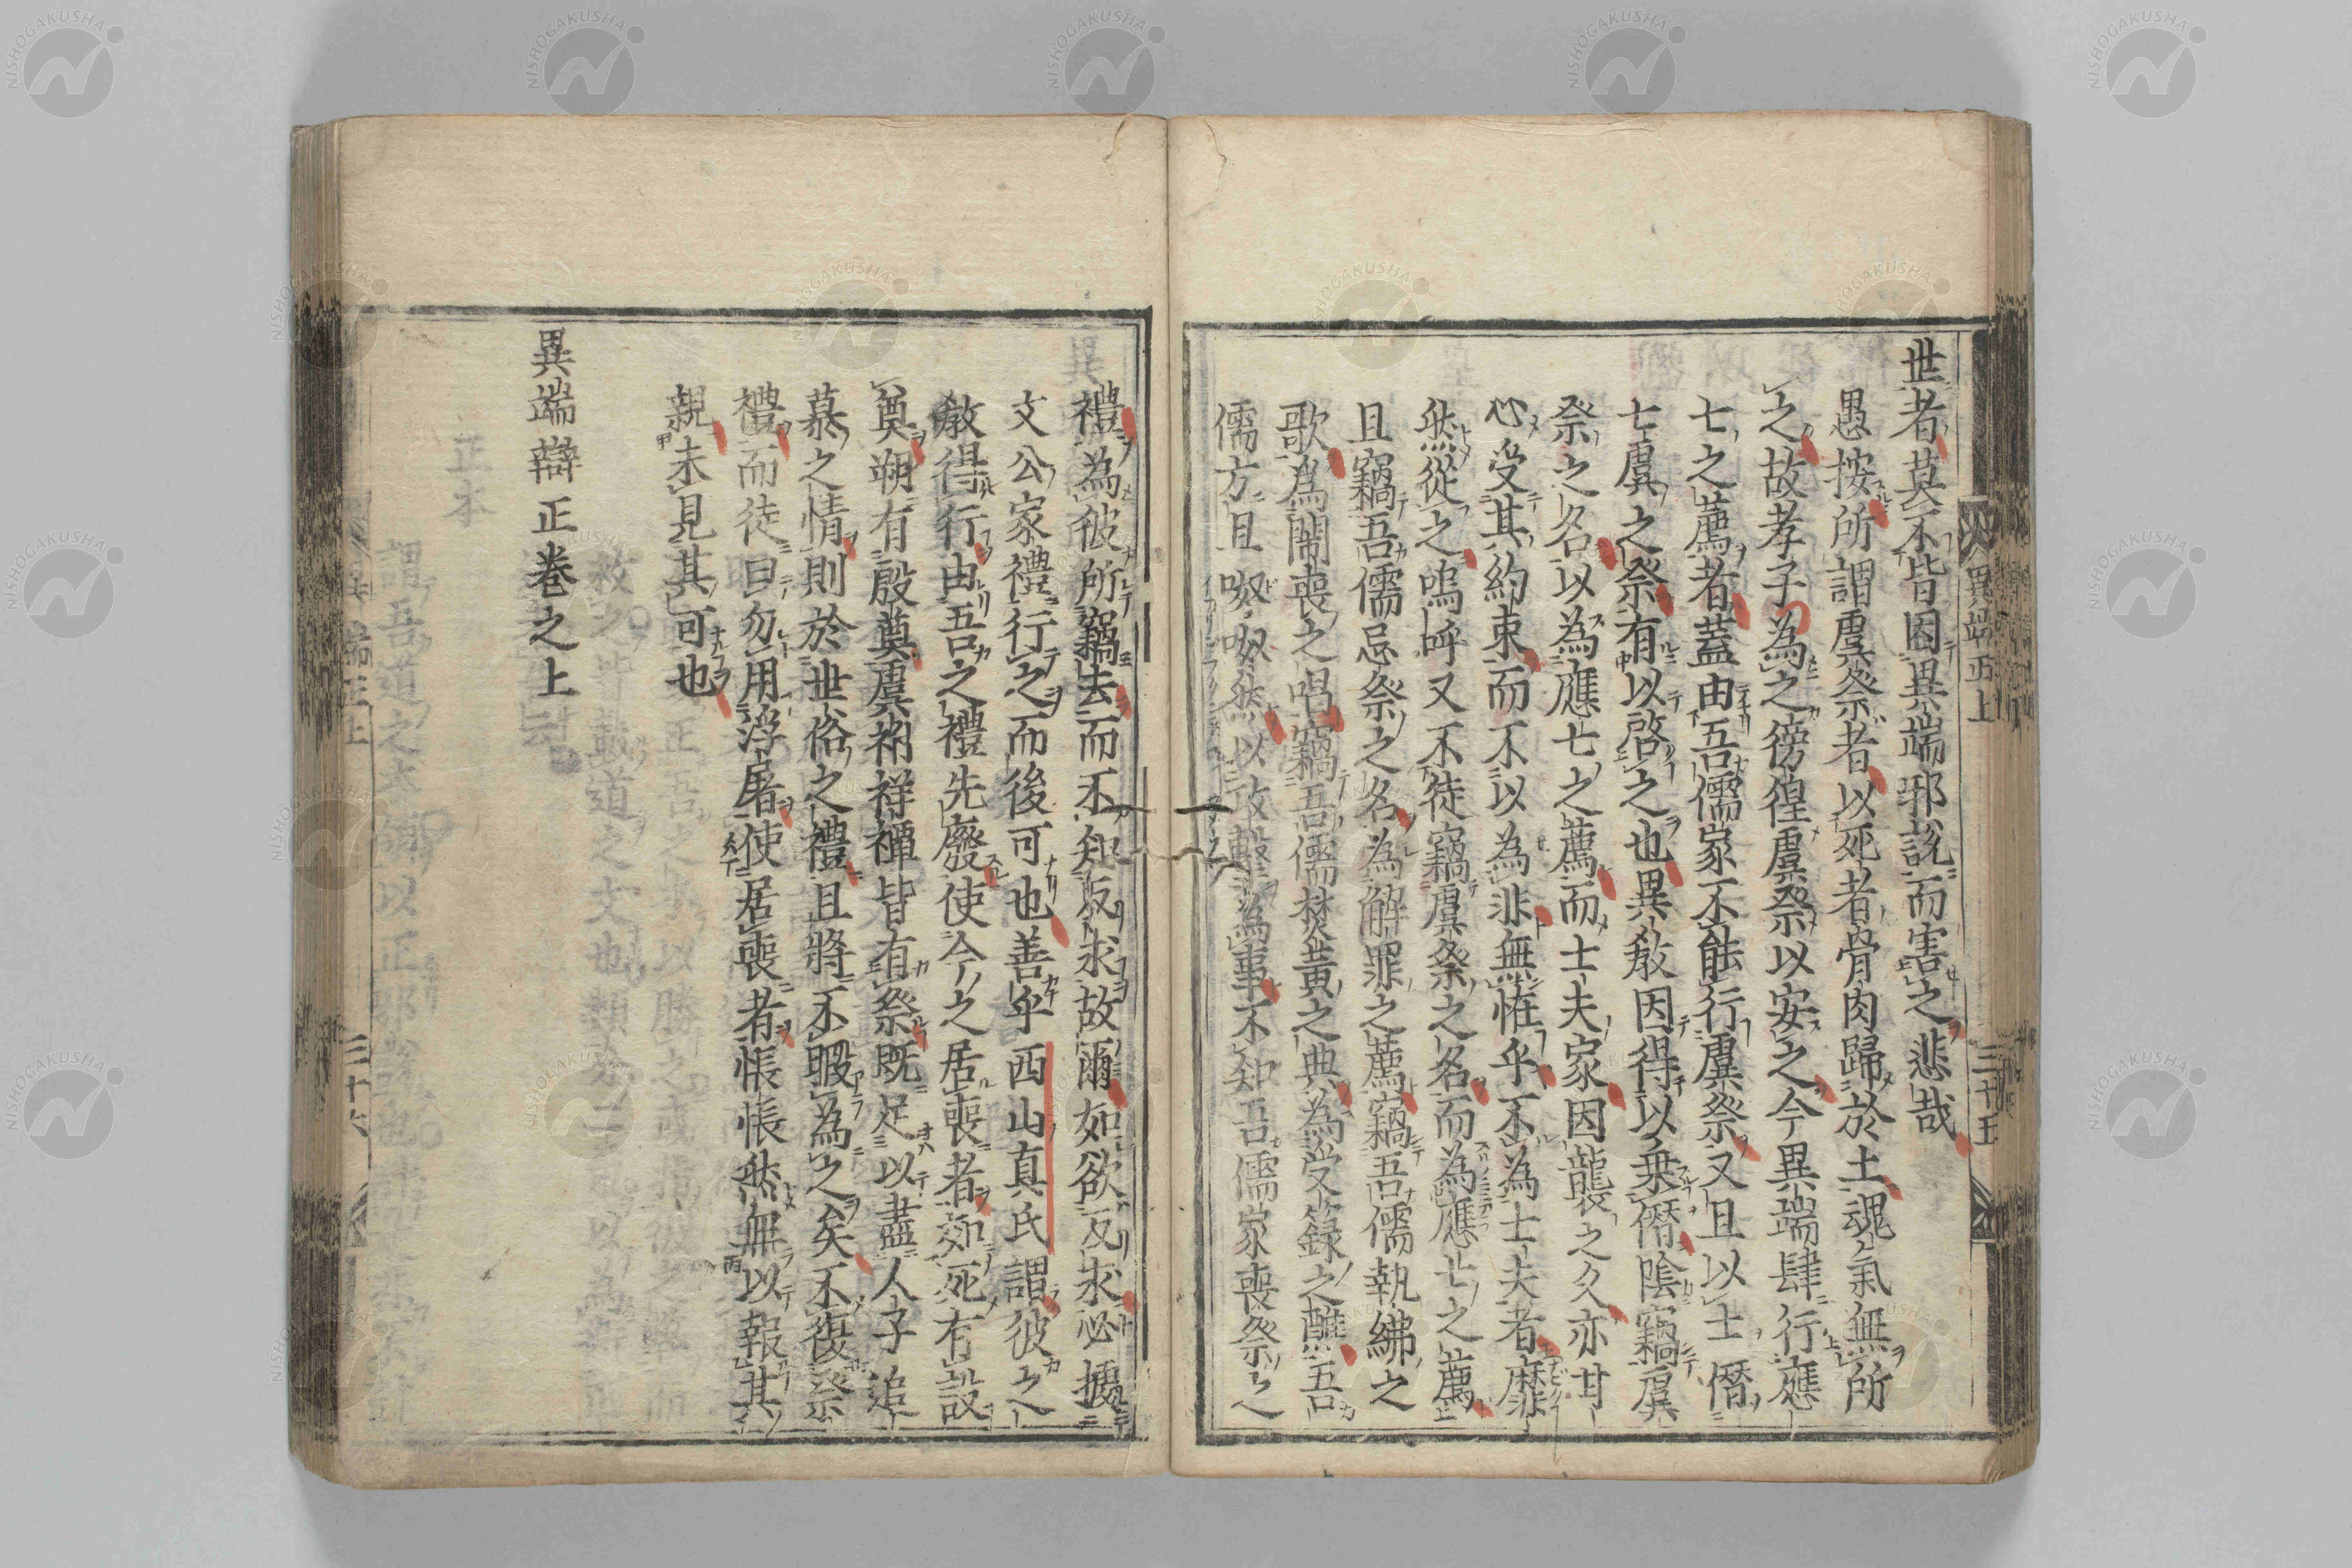 世者莫不皆因異端邪説而害之悲哉
愚按所謂虞祭者以死者骨肉歸於土魂氣無所
之故孝子為之徬徨虞祭以安之今異端肆行應
七之薦者蓋由吾儒家不能行虞祭又且以士僭
七虞之祭有以啓之也異教因得以乗僭隂竊虞
祭之名以為應七之薦而士夫家因襲之久亦甘
心受其約束而不以為非無恠乎不為士夫者靡
然從之嗚呼又不徒竊虞祭之名而為應七之薦
且竊吾儒忌祭之名為解罪之薦竊吾儒執紼之
歌為鬧喪之唱竊吾儒焚黄之典為受籙之醮吾
儒方且呶呶然以攻擊為事不知吾儒家喪祭之
異端正上
三十五
禮為彼所竊去而不知反求故爾如欲反求必據
文公家禮行之而後可也善乎西山真氏謂彼之
教得行由吾之禮先廢使今之居喪者始死有設
奠朔有殷奠虞祔祥禫皆有祭既足以盡人子追
慕之情則於世俗之禮且將不暇為之矣不復祭
禮而徒曰勿用浮屠使居喪者悵悵然無以報其
親未見其可也
異端辯正卷之上
三十六
NISHOGAKUSHA